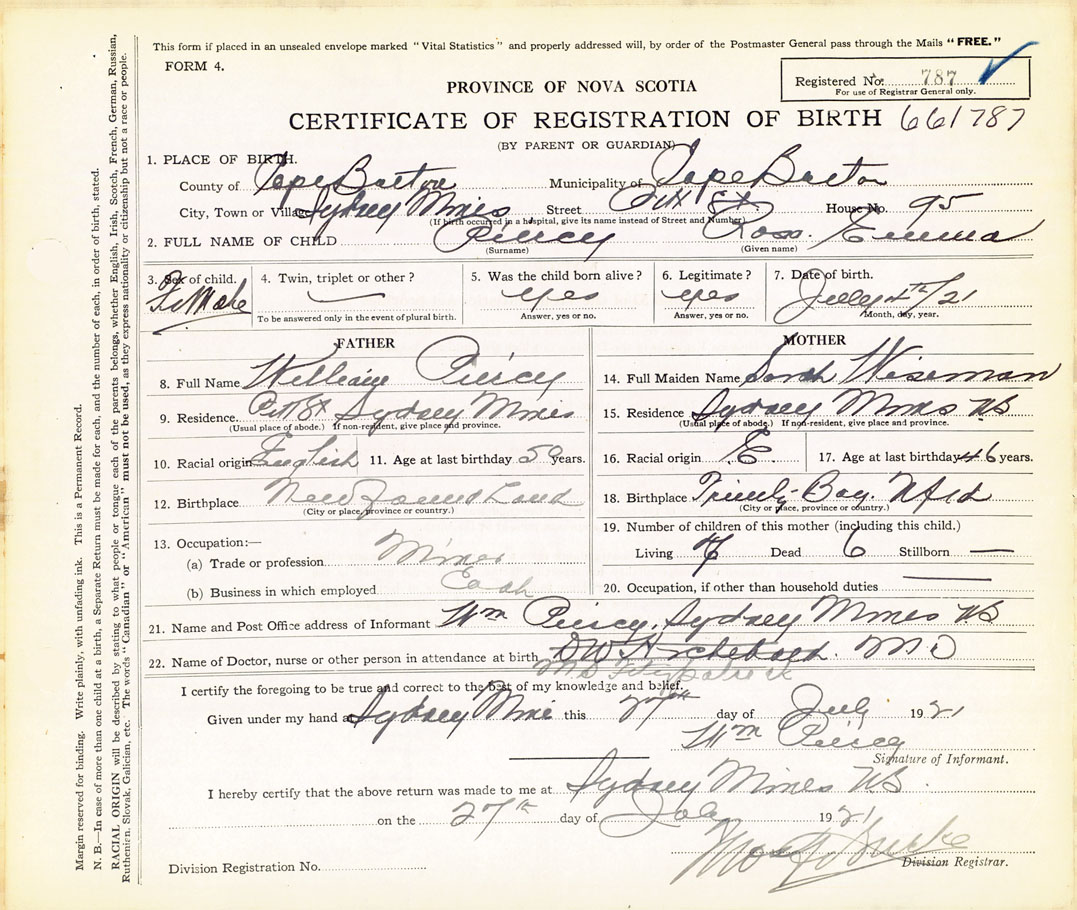 This form if placed in an unsealed envelope marked "Vital Statistics" and properly addressed will, by order of the Postmaster General pass through the Mails "FREE."
FORM 4.
Registered No. 787
For use of Registrar General only.
PROVINCE OF NOVA SCOTIA
CERTIFICATE OF REGISTRATION OF BIRTH 661787
(BY PARENT OR GUARDIAN)
1. PLACE OF BIRTH.
County of Cape Breton Municipality of Cape Breton
City, Town or Village Sydney Mines Street Pitt St House No. 95
(If birth occurred in a hospital, give its name instead of Street and Number)
2. FULL NAME OF CHILD Piercy Rose Emma
(Surname) (Given name)
3. Sex of child. 4. Twin, triplet or other? 5. Was the child born alive? 6. Legitimate? 7. Date of birth.
FeMale — yes yes July 4th/21
To be answered only in the event of plural birth. Answer, yes or no. Answer, yes or no. Month, day, year.
FATHER
8. Full Name William Piercy
9. Residence. Pitt St Sydney Mines
(Usual place of abode.) If non-resident, give place and province.
10. Racial origin English 11. Age at last birthday 50 years.
12. Birthplace New Found Land
(City or place, province or country.)
13. Occupation:—
(a) Trade or profession Miner
(b) Business in which employed
MOTHER
14. Full Maiden Name Sarah Wiseman
15. Residence Sydney Mines
(Usual place of abode.) If non-resident, give place and province.
16. Racial origin E. 17. Age at last birthday 46 years.
18. Birthplace Trinity Bay. Nfld
(City or place, province or country.)
19. Number of children of this mother (including this child.)
Living Dead 6 Stillborn —
20. Occupation, if other than household duties —
21. Name and Post Office address of Informant Wm Piercy, Sydney Mines
22. Name of Doctor, nurse or other person in attendance at birth DW Archibald. M.D
Fitzpatrick
I certify the foregoing to be true and correct to the best of my knowledge and belief.
Given under my hand at Sydney Mine this 27th day of July 1921
Wm Piercy
Signature of Informant.
I hereby certify that the above return was made to me at Sydney Mines
on the 27th day of July 1921
Division Registrar.
Division Registration No.
Margin reserved for binding. Write plainly, with unfading ink. This is a Permanent Record.
N. B.—In case of more than one child at a birth, a Separate Return must be made for each, and the number of each, in order of birth, stated.
RACIAL ORIGIN will be described by stating to what people or tongue each of the parents belongs, whether English, Irish, Scotch, French, German, Russian,
Ruthenien, Slovak, Galician, etc. The words "Canadian" or "American" must not be used, as they express nationality or citizenship but not a race or people.